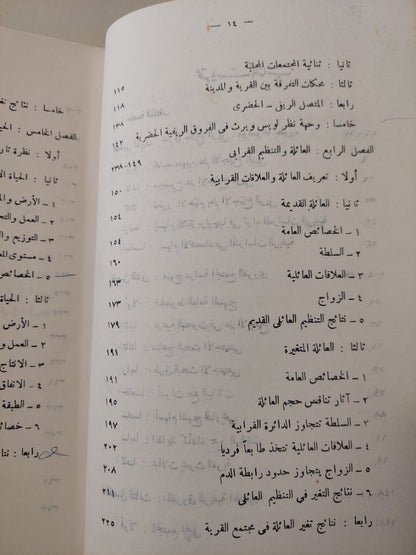 — ١٤ —
ثانيا : ثنائية المجتمعات المحلية
ثالثا : محكات التفرقة بين القرية والمدينة ١١٥
رابعا : المتصل الريفى ــ الحضرى ١١٨
خامسا : وجهة نظر لويس ويرث فى الفروق الريفية الحضرية ١٣٨
١٤٢
الفصل الرابع : العائلة والتنظيم القرابى ١٤٩-٢٣٨
أولا : تعريف العائلة والعلاقات القرابية ١٥٠
ثانيا : العائلة القديمة ١٥٤
١ ــ الخصائص العامة ١٥٤
٢ ــ السلطة ١٦٠
٣ ــ العلاقات العائلية ١٦٣
٤ ــ الزواج ١٧٣
٥ ــ نتائج التنظيم العائلى القديم ١٧٩
ثالثا : العائلة المتغيرة ١٩١
١ ــ الخصائص العامة ١٩١
٢ ــ آثار تناقص حجم العائلة ١٩٥
٣ ــ السلطة تتجاوز الدائرة القرابية ١٩٧
٤ ــ العلاقات العائلية تتخذ طابعا فرديا ٢٠٢
٥ ــ الزواج يتجاوز حدود رابطة الدم ٢٠٨
٦ ــ نتائج التغير فى التنظيم العائلى ٢١١
رابعا : نتائج تغير العائلة فى مجتمع القرية ٢٢٥
خامسا : نتائج تغ
الفصل الخامس : الحيا
أولا : نظرة تار
ثانيا : الحياة الا
١ ــ الأرض والم
٢ ــ العمل والتخ
٣ ــ التوزيع وال
٤ ــ مستوى الم
٥ ــ الخصائص
ثالثا : الحياة
١ ــ الأرض
٢ ــ العمل و
٣ ــ الانتاج
٤ ــ الاتفاق
٥ ــ الطبقة
٦ ــ خصائ
رابعا : نتا